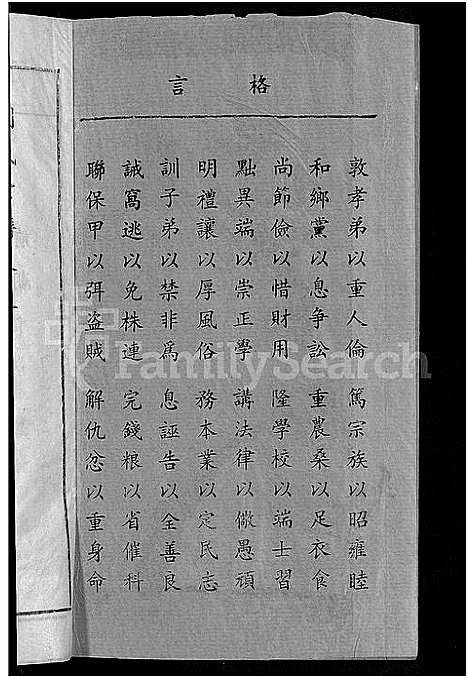 格言
敦孝弟以重人倫 篤宗族以昭雍睦
和鄉黨以息争訟 重農桑以足衣食
尚節儉以惜財用 隆學校以端士習
黜異端以崇正學 講法律以儆愚頑
明禮讓以厚風俗 務本業以定民志
訓子弟以禁非為 息誣告以全善良
誡窩逃以免株連 完錢粮以省催科
聯保甲以弭盗賊 解仇忿以重身命
FamilySearch